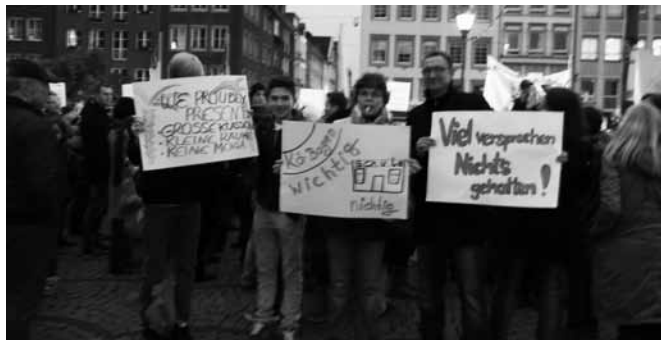 WE PROUDLY
PRESENT
- GROSSE KLASSEN
- KLEINE RÄUME
- KEINE MOKU
Kö-Bogen
wichtig
SCHULE
nichtig
Viel versprochen
Nichts
gehalten!